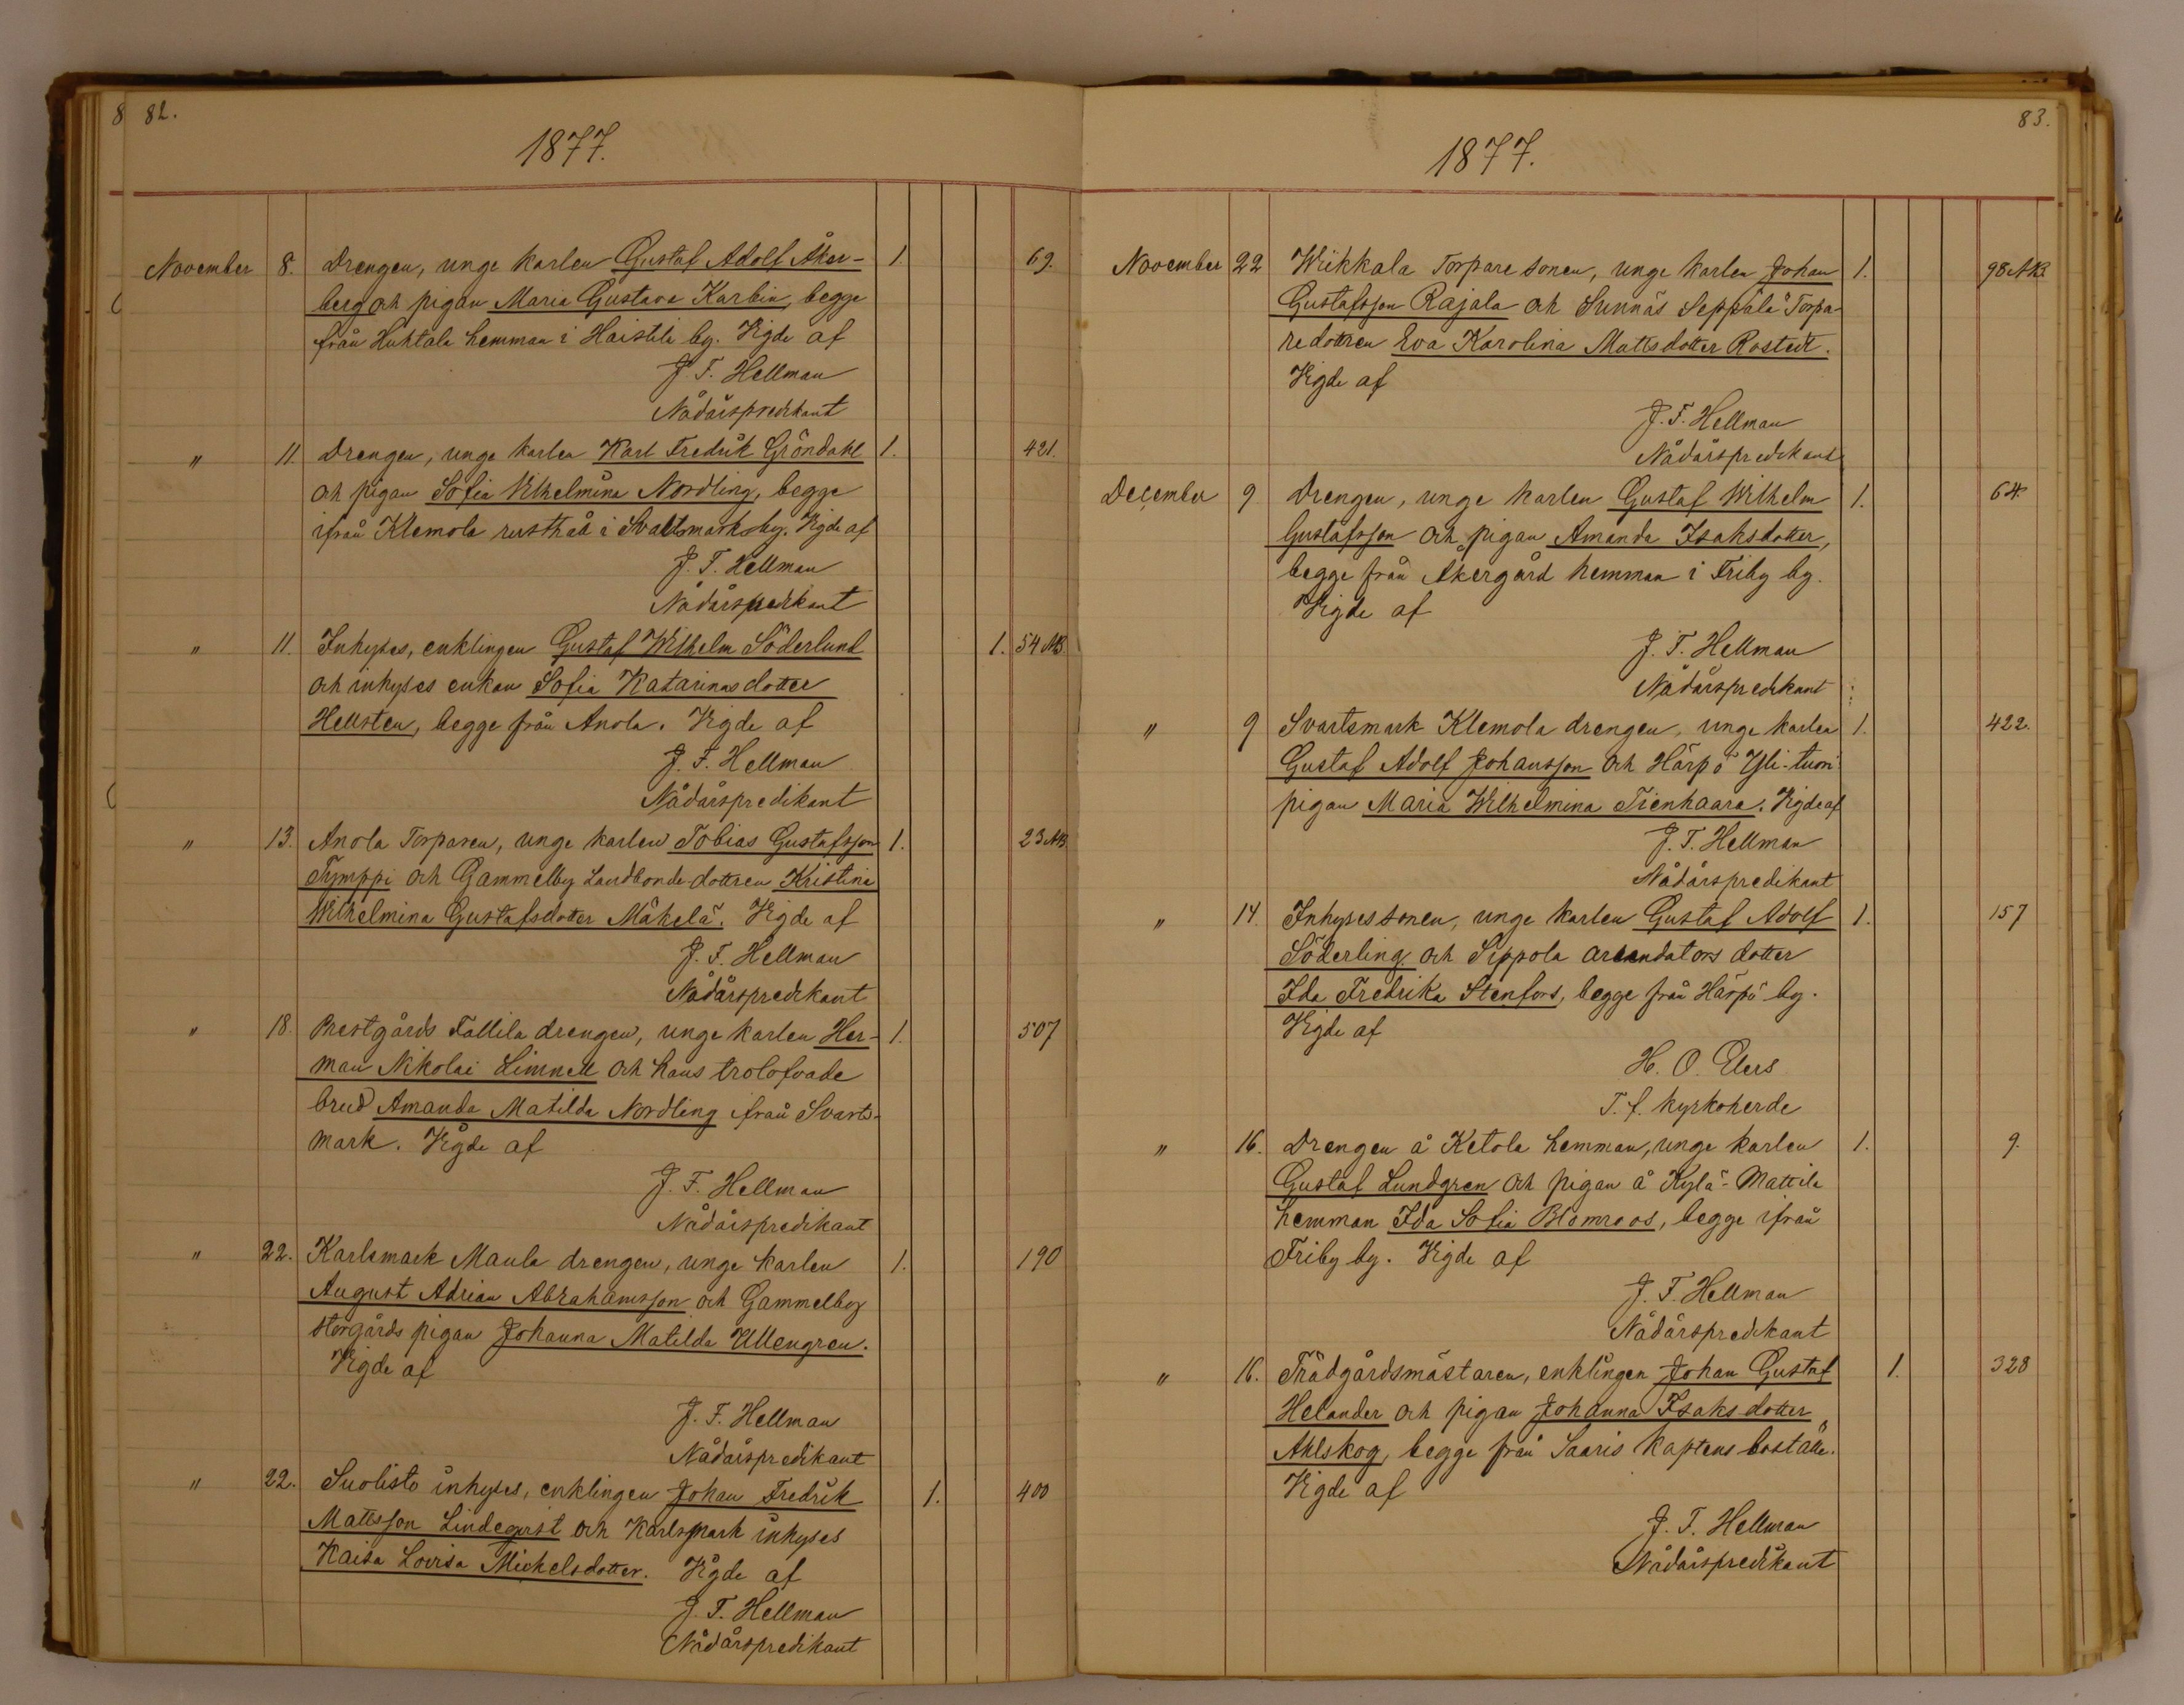 8 82.
1877.
November 8. Drengen, unge karlen Gustaf Adolf Åker- 1. 69.
berg och pigan Maria Gustava Karbin, begge
från Huhtala hemman i Haistila by. Vigde af
J. F. Hellman
Nådårspredikant
" 11. Drengen, unge karlen Karl Fredrik Gröndahl 1. 421.
och pigan Sofia Vilhelmina Nordling, begge
ifrån Klemola rusthåll i Svartsmark by. Vigde af
J. F. Hellman
Nådårspredikant
" 11. Inhyses, enklingen Gustaf Wilhelm Söderlund 1. 54 AB
och inhyses enkan Sofia Katarinasdotter
Hellsten, begge från Anola. Vigde af
J. F. Hellman
Nådårspredikant
" 13. Anola Torparen, unge karlen Tobias Gustafsson 1. 23 AB
Tymppi och Gammelby Landbonde-dottren Kristina
Wilhelmina Gustafsdotter Mäkelä. Vigde af
J. F. Hellman
Nådårspredikant
" 18. Prestgårds Tallila drengen, unge karlen Her- 1. 507
man Nikolai Limnell och hans trolofvade
brud Amanda Matilda Nordling ifrån Svarts-
mark. Vigde af
J. F. Hellman
Nådårspredikant
" 22. Karlsmark Maula drengen, unge karlen 1. 190
August Adrian Abrahamsson och Gammelby
storgårds pigan Johanna Matilda Ullengren.
Vigde af
J. F. Hellman
Nådårspredikant
" 22. Suolisto inhyses, enklingen Johan Fredrik 1. 400
Mattsson Lindeqvist och Karlsmark inhyses
Kaisa Lovisa Mickelsdotter. Vigde af
J. F. Hellman
Nådårspredikant
83.
1877.
November 22 Wiikkala Torparesonen, unge karlen Johan 1. 98 AB.
Gustafsson Rajala och Sunnäs Seppälä Torpa-
redottren Eva Karolina Mattsdotter Rostedt.
Vigde af
J. F. Hellman
Nådårspredikant
December 9 Drengen, unge karlen Gustaf Wilhelm 1. 64.
Gustafsson och pigan Amanda Isaksdotter,
begge från Åkergård hemman i Friby by.
Vigde af
J. F. Hellman
Nådårspredikant
" 9 Svartsmark Klemola drengen, unge karlen 1. 422.
Gustaf Adolf Johansson och Härpö Yli-tuori
pigan Maria Wilhelmina Tienhaara. Vigde af
J. F. Hellman
Nådårspredikant
" 14. Inhysessonen, unge karlen Gustaf Adolf 1. 157
Söderling och Sippola arendators dotter
Ida Fredrika Stenfors, begge från Härpö by.
Vigde af
H. O. Elers
T. f. kyrkoherde
" 16. Drengen å Ketola hemman, unge karlen 1. 9.
Gustaf Lundgren och pigan å Kylä-Mattila
hemman Ida Sofia Blomroos, begge ifrån
Friby by. Vigde af
J. F. Hellman
Nådårspredikant
" 16. Trädgårdsmästaren, enklingen Johan Gustaf 1. 328
Helander och pigan Johanna Isaksdotter
Ahlskog, begge från Saaris kaptens boställe.
Vigde af
J. F. Hellman
Nådårspredikant